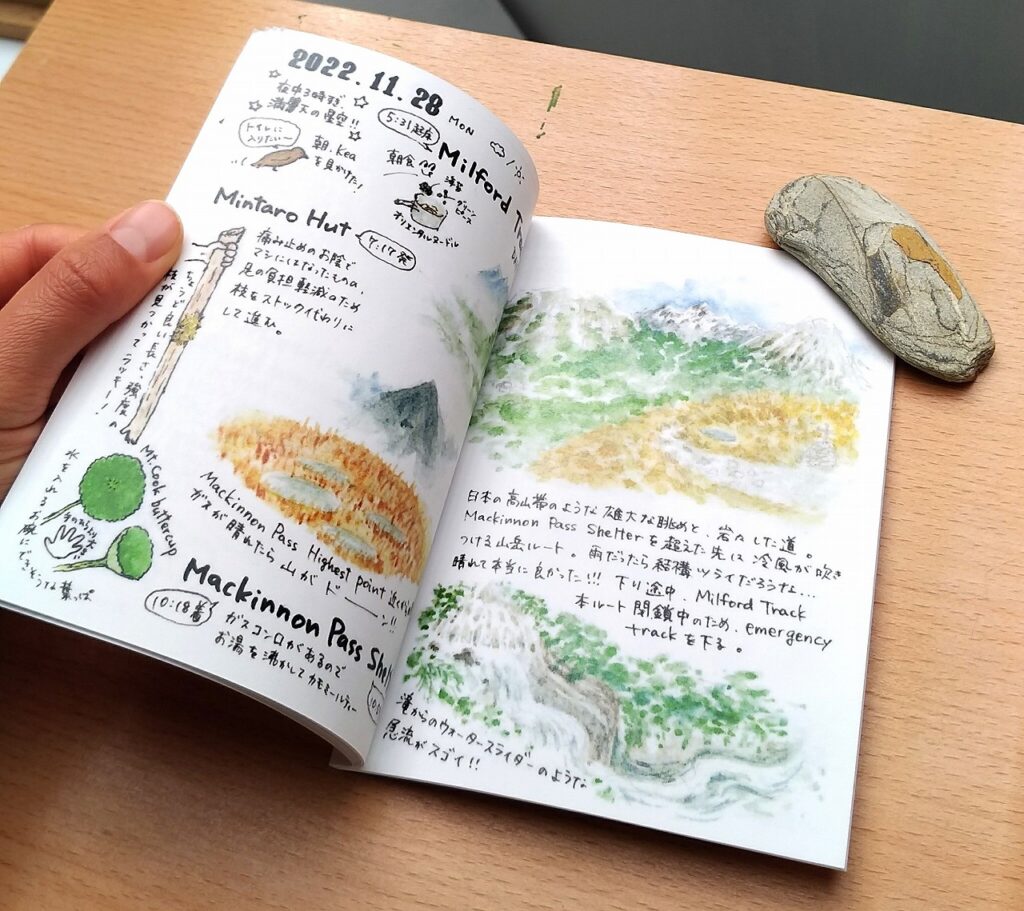 2022.11.28 MON
夜中3時すぎ、
満天の星空!!
トイレに
入りたい〜
朝、Kea
を見かけた!
5:31起床
Milford Tr
朝食
グリーン
ピース
オリエンタルヌードル
Mintaro Hut
7:17発
痛み止めのお陰で
マシにはなったものの、
足の負担軽減のため
枝をストック代わりに
して進む。
ちょうど良い長さ、強度の
枝が見つかってラッキー!
Mt. Cook buttercup
水を入れるお椀にできそうな葉っぱ
手のひらより大
Mackinnon Pass Highest point 近く
ガスが晴れたら 山がドーーン!!
Mackinnon Pass Shel
10:18着
ガスコンロがあるので
お湯を沸かしてカモミールティー
日本の高山帯のような雄大な眺めと、岩々した道。
Mackinnon Pass Shelterを超えた先は冷風が吹き
つける山岳ルート。雨だったら結構ツライだろうな...
晴れて本当に良かった!!! 下り途中、Milford Track
本ルート閉鎖中のため、emergency
trackを下る。
滝からのウォータースライダーのような
急流がスゴイ!!